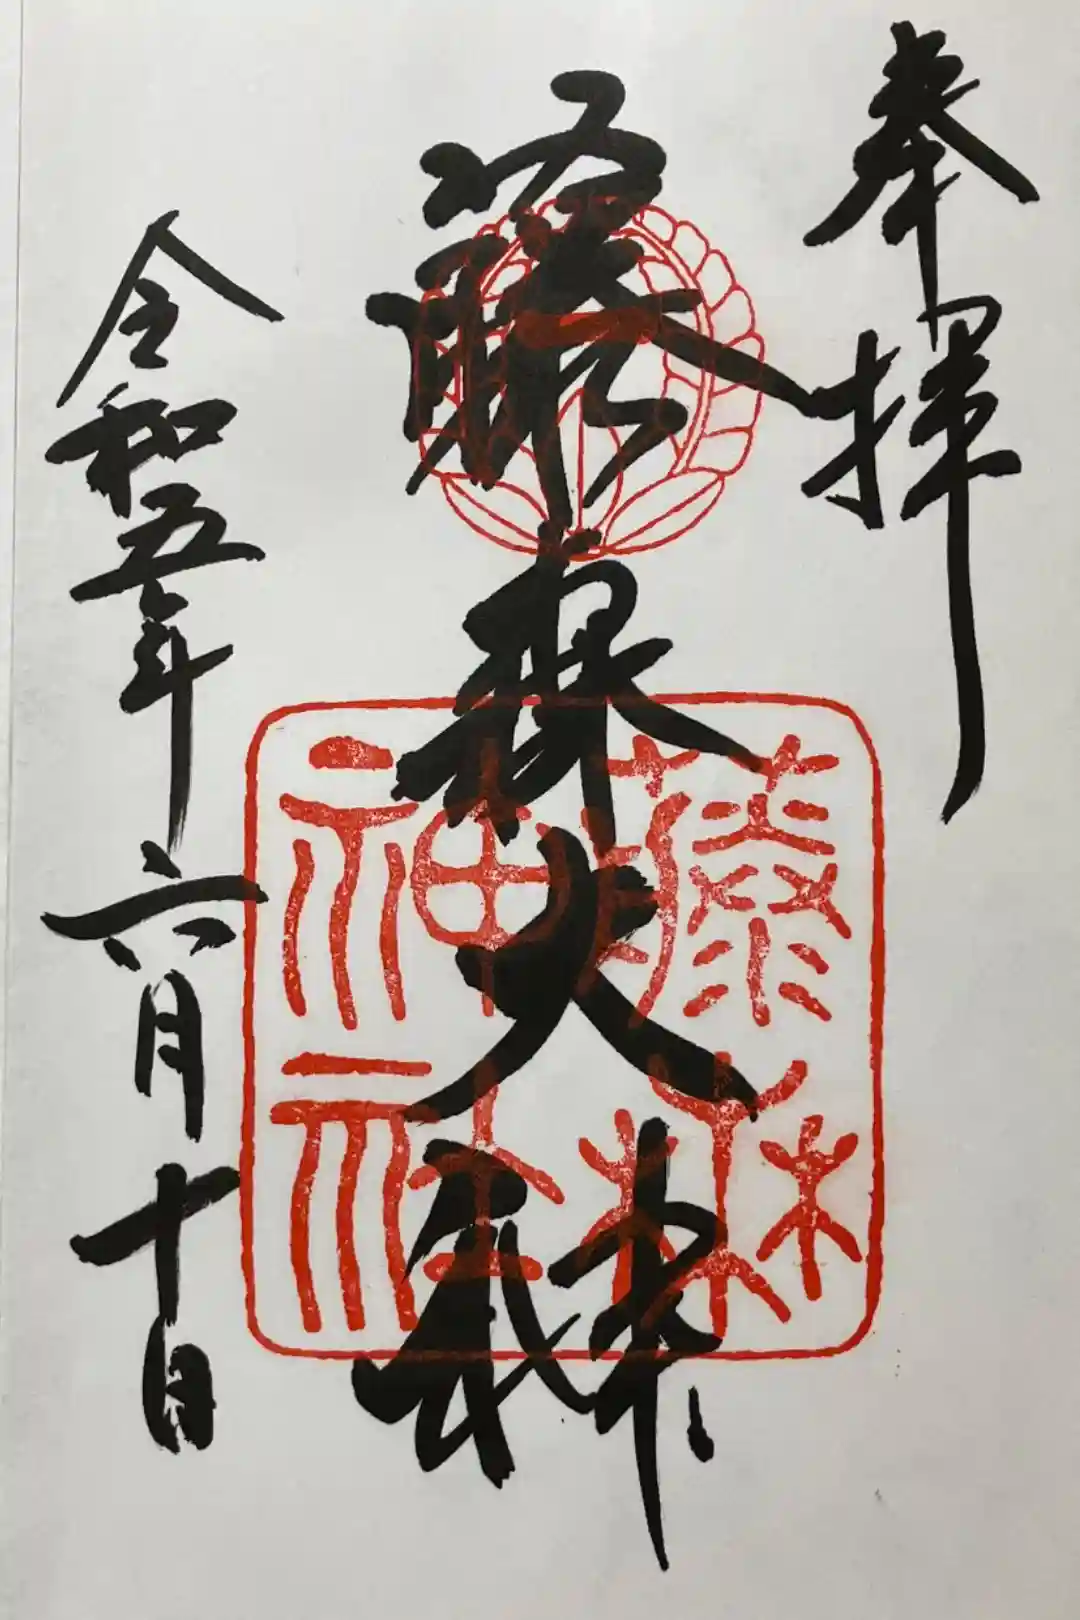 奉拝
藤森大神
令和五年六月十日
藤森
神社